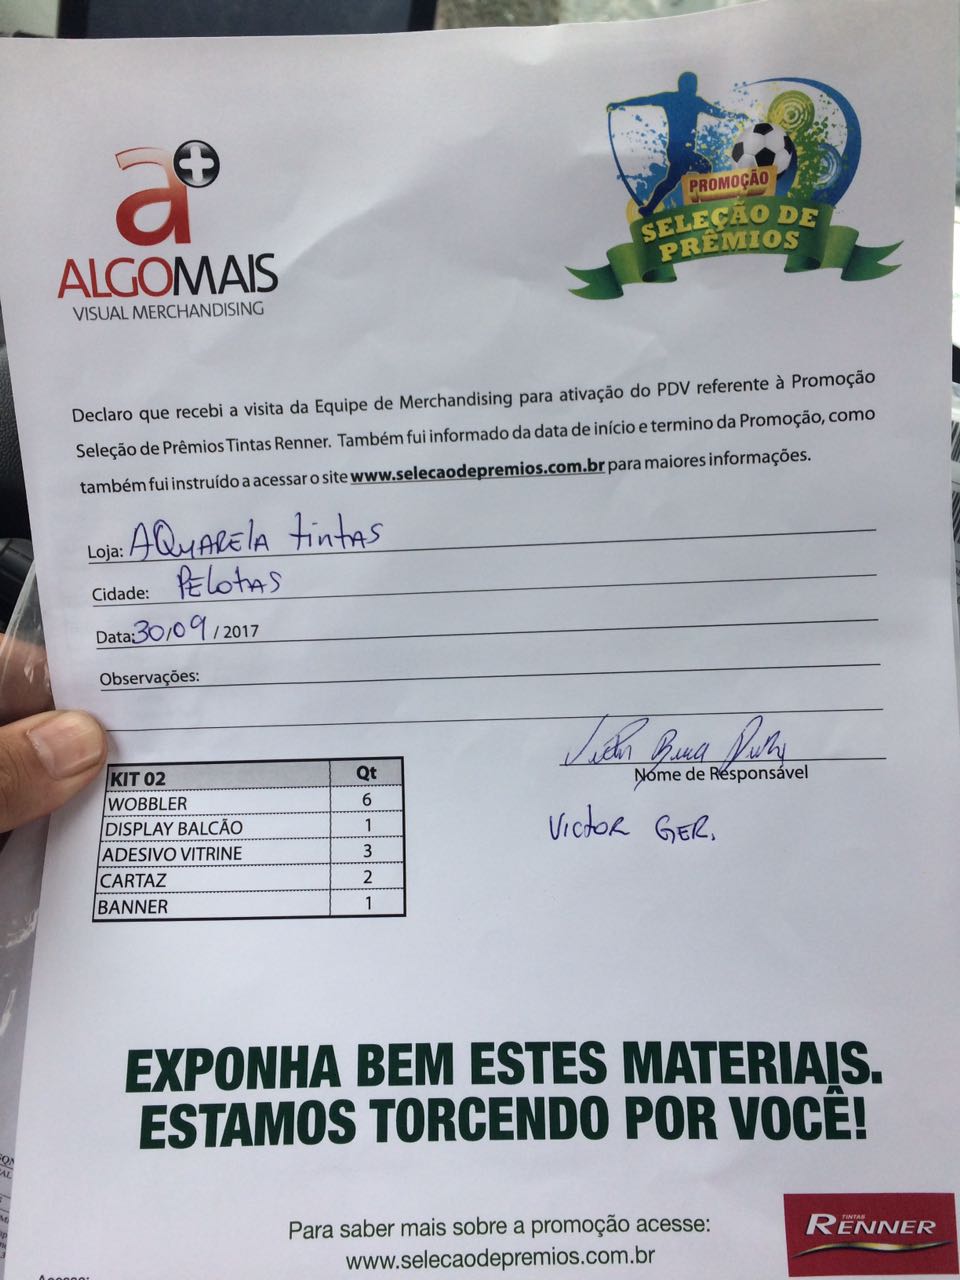 a+
ALGOMAIS
VISUAL MERCHANDISING
PROMOÇÃO
SELEÇÃO DE
PRÊMIOS
Declaro que recebi a visita da Equipe de Merchandising para ativação do PDV referente à Promoção
Seleção de Prêmios Tintas Renner. Também fui informado da data de início e termino da Promoção, como
também fui instruído a acessar o site www.selecaodepremios.com.br para maiores informações.
Loja: AQUARELA TINTAS
Cidade: PELOTAS
Data: 30/09 / 2017
Observações:
Nome de Responsável
VICTOR GER.
KIT 02 Qt
WOBBLER 6
DISPLAY BALCÃO 1
ADESIVO VITRINE 3
CARTAZ 2
BANNER 1
EXPONHA BEM ESTES MATERIAIS.
ESTAMOS TORCENDO POR VOCÊ!
Para saber mais sobre a promoção acesse:
www.selecaodepremios.com.br
TINTAS
RENNER